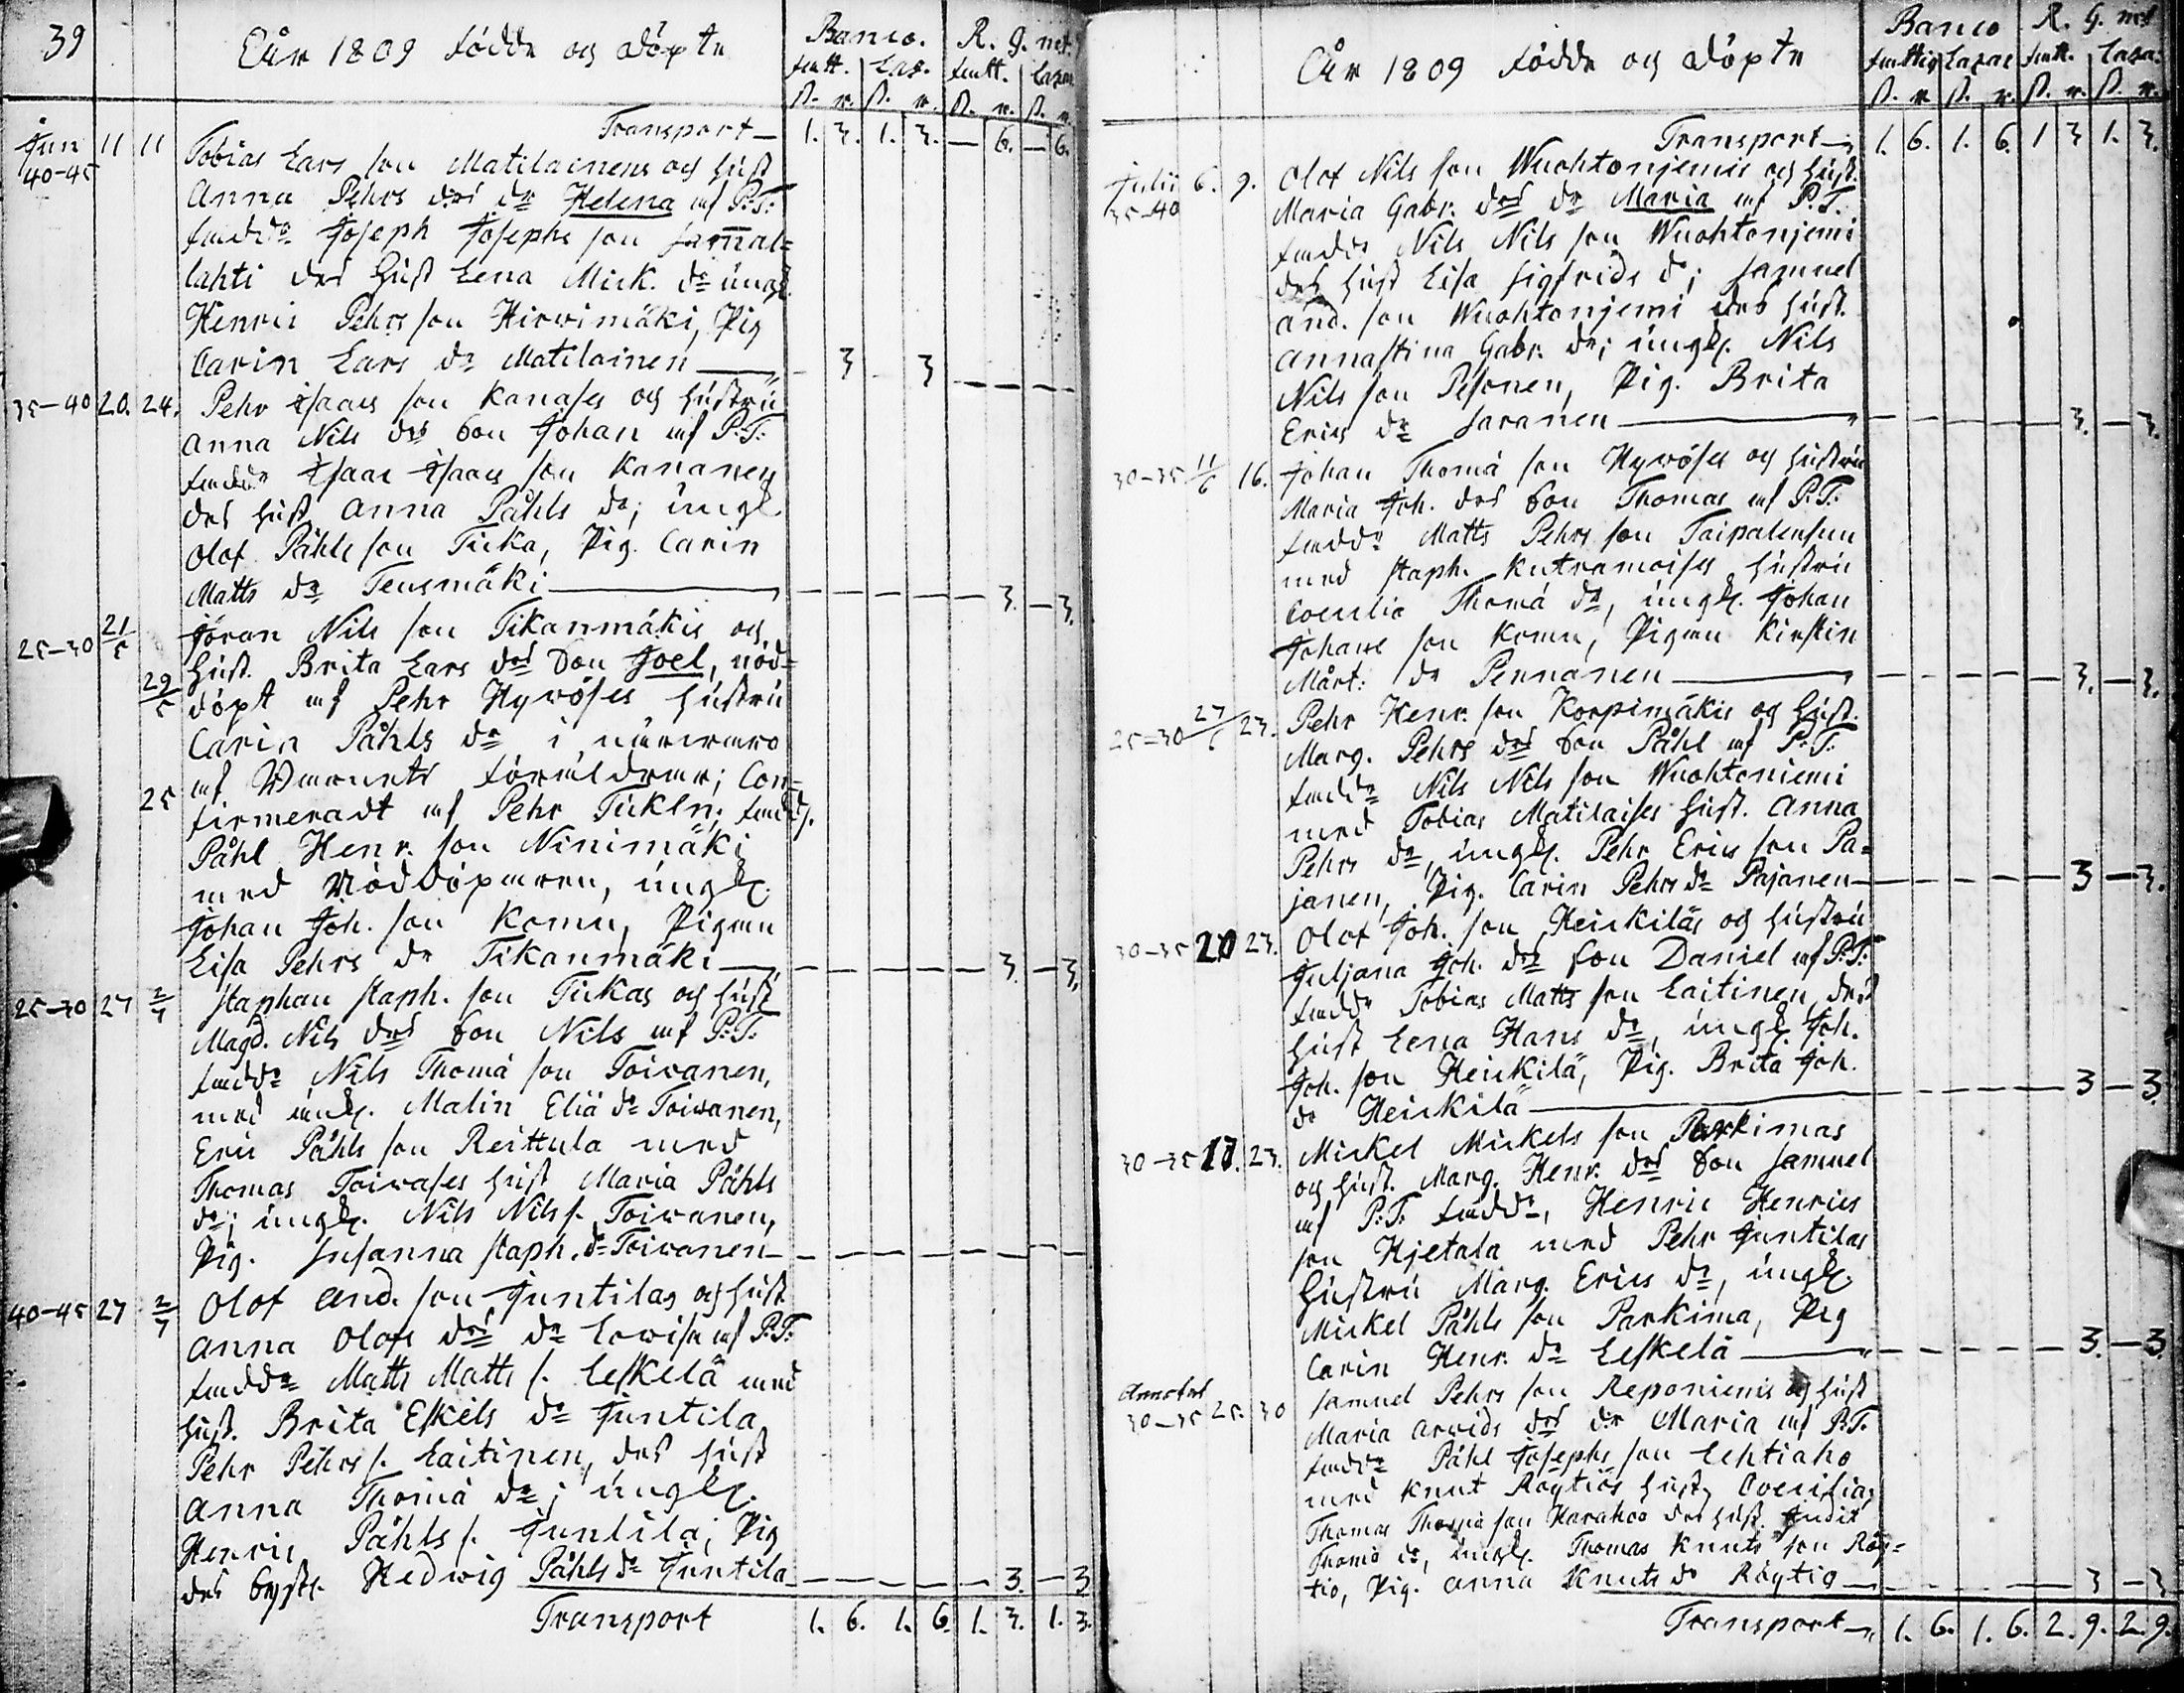 39
Åår 1809 födde og döpte
Banco. R. g. net.
fatt. Laz. fatt. Lazar
ß. r. ß. r. ß. r. ß. r.
Transport — 1. 3. 1. 3. — 6. — 6.
Jun 11 11 Tobias Lars son Matilainens og Hust
40-45 Anna Pehrs drs dr Helena af P:T:
fadd: Joseph Josephs son Jamal=
lahti des Hust Lena Mick. dr ungk.
Henric Pehrs son Hirvimäki, Pig
Carin Lars dr Matilainen — 3 3 — — — —
35-40 20. 24. Pehr Isaacs son Kanases og Hustru
Anna Nils drs Son Johan af P:T:
fadd: Isaac Isaacs son Kananen
des Hust Anna Påhls dr; ungk
Olof Påhls son Ticka, Pig. Carin
Matts dr Teusmäki — — — — — — 3. — 3.
25-30 21/5 Jöran Nils son Tikanmäkis og
Hust. Brita Lars drs Son Joel, nöd=
29/5 döpt af Pehr Hyvöses Hustru
Carin Påhls dr i närvaro
af Barnets föräldrar; Con=
25 firmeradt af Pehr Tickln; fadd.
Påhl Henr. son Ninimäki
med Nöddöparen, ungk.
Johan Joh. son Komu, Pigan
Lisa Pehrs dr Tikanmäki — — — — — 3. — 3.
25-30 27 2/7 Staphan Staph. son Tickas og Hust
Magd. Nils drs Son Nils af P:T:
fadd: Nils Thomä son Toivanen,
med ungk. Malin Eliä dr Toivanen,
Eric Påhls son Reittula med
Thomas Toivases Hust Maria Påhls
dr; ungk. Nils Nils s. Toivanen,
Pig. Susanna Staph. dr Toivanen — — — — — — — —
40-45 27 2/7 Olof And. son Juntilas og Hust
Anna Olofs drs dr Lovisa af P:T:
fadd: Matts Matts s. Leskelä med
Hust. Brita Eskels dr Juntila
Pehr Pehrs s. Laitinen, des Hust
Anna Thomä dr; ungk.
Henric Påhls s. Juntila; Pig
Hedwig Påhls dr Juntila — — — — — 3. — 3
Transport 1. 6. 1. 6. 1. 3. 1. 3.
Åår 1809 födde og döpte
Banco R. G. net
fattig Lazar fatt. Lazar
ß. r. ß. r. ß. r. ß. r.
Transport — 1. 6. 1. 6. 1 3 1. 3.
Julii 6. 9. Olof Nils son Wuohtonjemis og Hust.
35-40 Maria Gabr. drs dr Maria af P.T.
fadd: Nils Nils son Wuohtonjemi
des Hust Lisa Sigfrids d; Samuel
And. son Wuohtonjemi des Hust.
Annastina Gabr. dr; ungk. Nils
Nils son Pesonen, Pig. Brita
Erics dr Saranen — — — — — 3. — 3.
30-35 11/6 16. Johan Thomä son Hyvöses og Hustru
Maria Joh. drs Son Thomas af P:T:
fadd: Matts Pehrs son Taipalensuu
med Staph. Kutramoises Hustru
Coecilia Thomä dr, ungk. Johan
Johans son Komu, Pigan Kirstin
Mårt: dr Pennanen — — — — — 3. — 3.
25-30 27/6 23. Pehr Henr. son Korpimäkis og Hust.
Marg. Pehrs drs Son Påhl af P:T:
fadd: Nils Nils son Wuohtoniemi
med Tobias Matilaises Hust. Anna
Pehrs dr, ungk. Pehr Erics son Pa=
janen, Pig. Carin Pehrs dr Pajanen — — — — — 3 — 3.
30-35 20 23. Olof Joh. son Heickiläs og Hustru
Juljana Joh. drs Son Daniel af P:T:
fadd: Tobias Matts son Laitinen des
Hust Lena Hans dr, ungk. Joh.
Joh. son Heickilä, Pig. Brita Joh.
dr Heickilä — — — — — 3 — 3.
30-35 17. 23. Mickel Mickels son Parkimas
og Hust. Marg. Henr. drs Son Samuel
af P:T: fadd:, Henric Henrics
son Hjetala med Pehr Juntilas
Hustru Marg. Erics dr, ungk.
Mickel Påhls son Parkima, Pig
Carin Henr. dr Leskelä — — — — — 3. — 3.
30-35 25. 30 Samuel Pehrs son Reponiemis og Hust
Maria Arvids drs dr Maria af P:T:
fadd: Påhl Josephs son Lehtiaho
med Knut Röytiös Hust. Coecilia
Thomas Thomä son Harahoo des Hust. Judit
Thomä dr, ungk. Thomas Knuts son Röy=
tio, Pig. Anna Knuts dr Röytiö — — — — — 3 — 3
Transport — 1. 6. 1. 6. 2. 9. 2. 9.